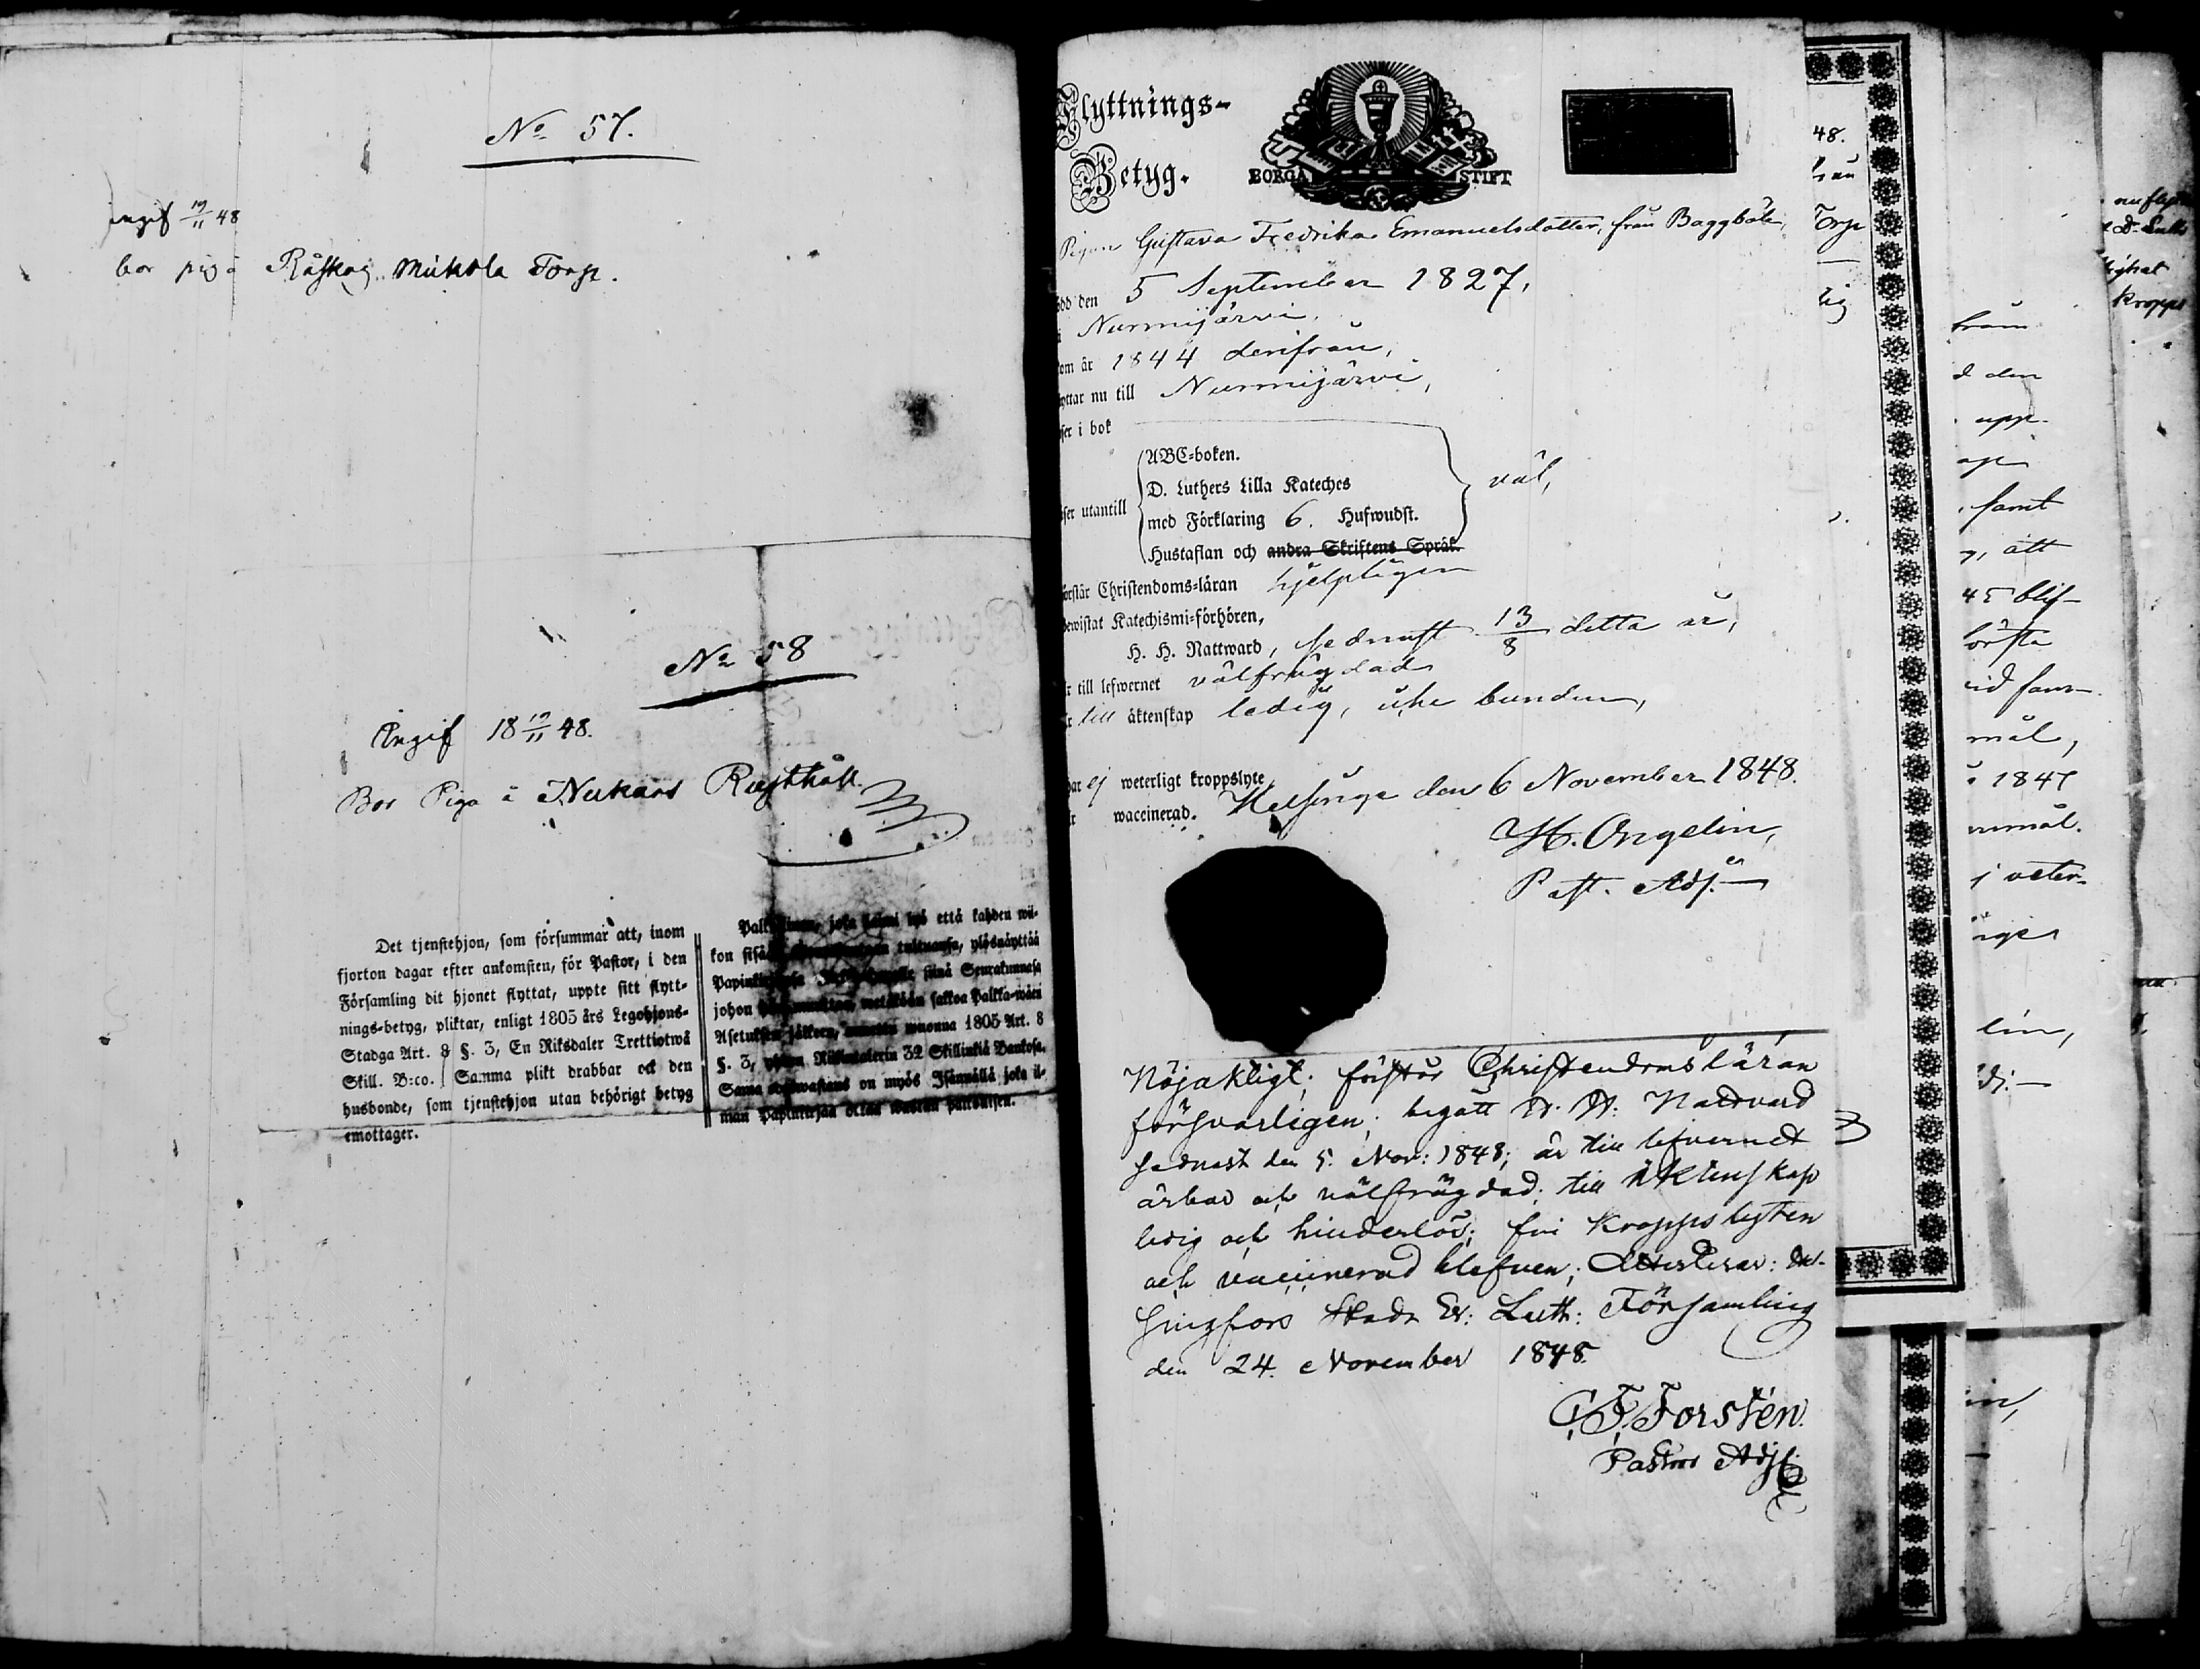 No 57.
ingif 19/11 48
bor piga Råskog Mukola Torp.
No 58
Angif 18 19/11 48.
Bor Piga å Nukars Rusthåll.
Det tjenstehjon, som försummar att, inom
fjorton dagar efter ankomsten, för Pastor, i den
Församling dit hjonet flyttat, uppte sitt flytt-
nings-betyg, pliktar, enligt 1805 års Legohjons-
Stadga Art. 8 §. 3, En Riksdaler Trettiotwå
Skill. B:co. Samma plikt drabbar ock den
husbonde, som tjenstehjon utan behörigt betyg
emottager.
joka että kahden wii-
kon tultuansa, ylösnäyttää
siinä Seurakunnasa
johon wetäköön sakkoa Palkka-wäen
Asetuksen jälkeen, wuonna 1805 Art. 8
§. 3, Riksintalerin 32 Skillinkiä Bankosa.
Sama on myös Isännällä joka il-
man
Flyttnings-
Betyg.
BORGÅ STIFT
Pigan Gustava Fredrika Emanuelsdotter, från Baggböle,
ödd den 5 September 1827,
i Nurmijärvi,
om år 1844 derifrån,
yttar nu till Nurmijärvi,
ser i bok
ABC-boken.
D. Luthers Lilla Kateches
ser utantill med Förklaring 6. Hufwudst. väl,
Hustaflan och andra Skriftens Språk.
örstår Christendoms-läran hjelpligen
bewistat Katechismi-förhören,
H. H. Nattward, sednast 13/8 detta år,
r till lefwernet välfrägdad
r till äktenskap ledig, icke bunden,
har ej weterligt kroppslyte
r waccinerad. Helsinge den 6 November 1848.
H. Ongelin,
Past. Adj.
Nöjaktigt; förstår Christendomsläran
försvarligen; begått H. H. Nattvard
sednast den 5. Nov: 1848; är till lefvernet
ärbar och välfrägdad; till äktenskap
ledig och hinderlös; fri Kroppslyten
och vaccinerad blefven; Attesterar: Hel-
singfors Stads Ev: Luth: Församling
den 24. November 1848.
C. F. Forstén.
Pastors Adj.
48.
Torp
lig
från
d den
upp-
samt
att
45 blif-
första
mål,
1847
inmål.
j veter-
lin,
Kropps